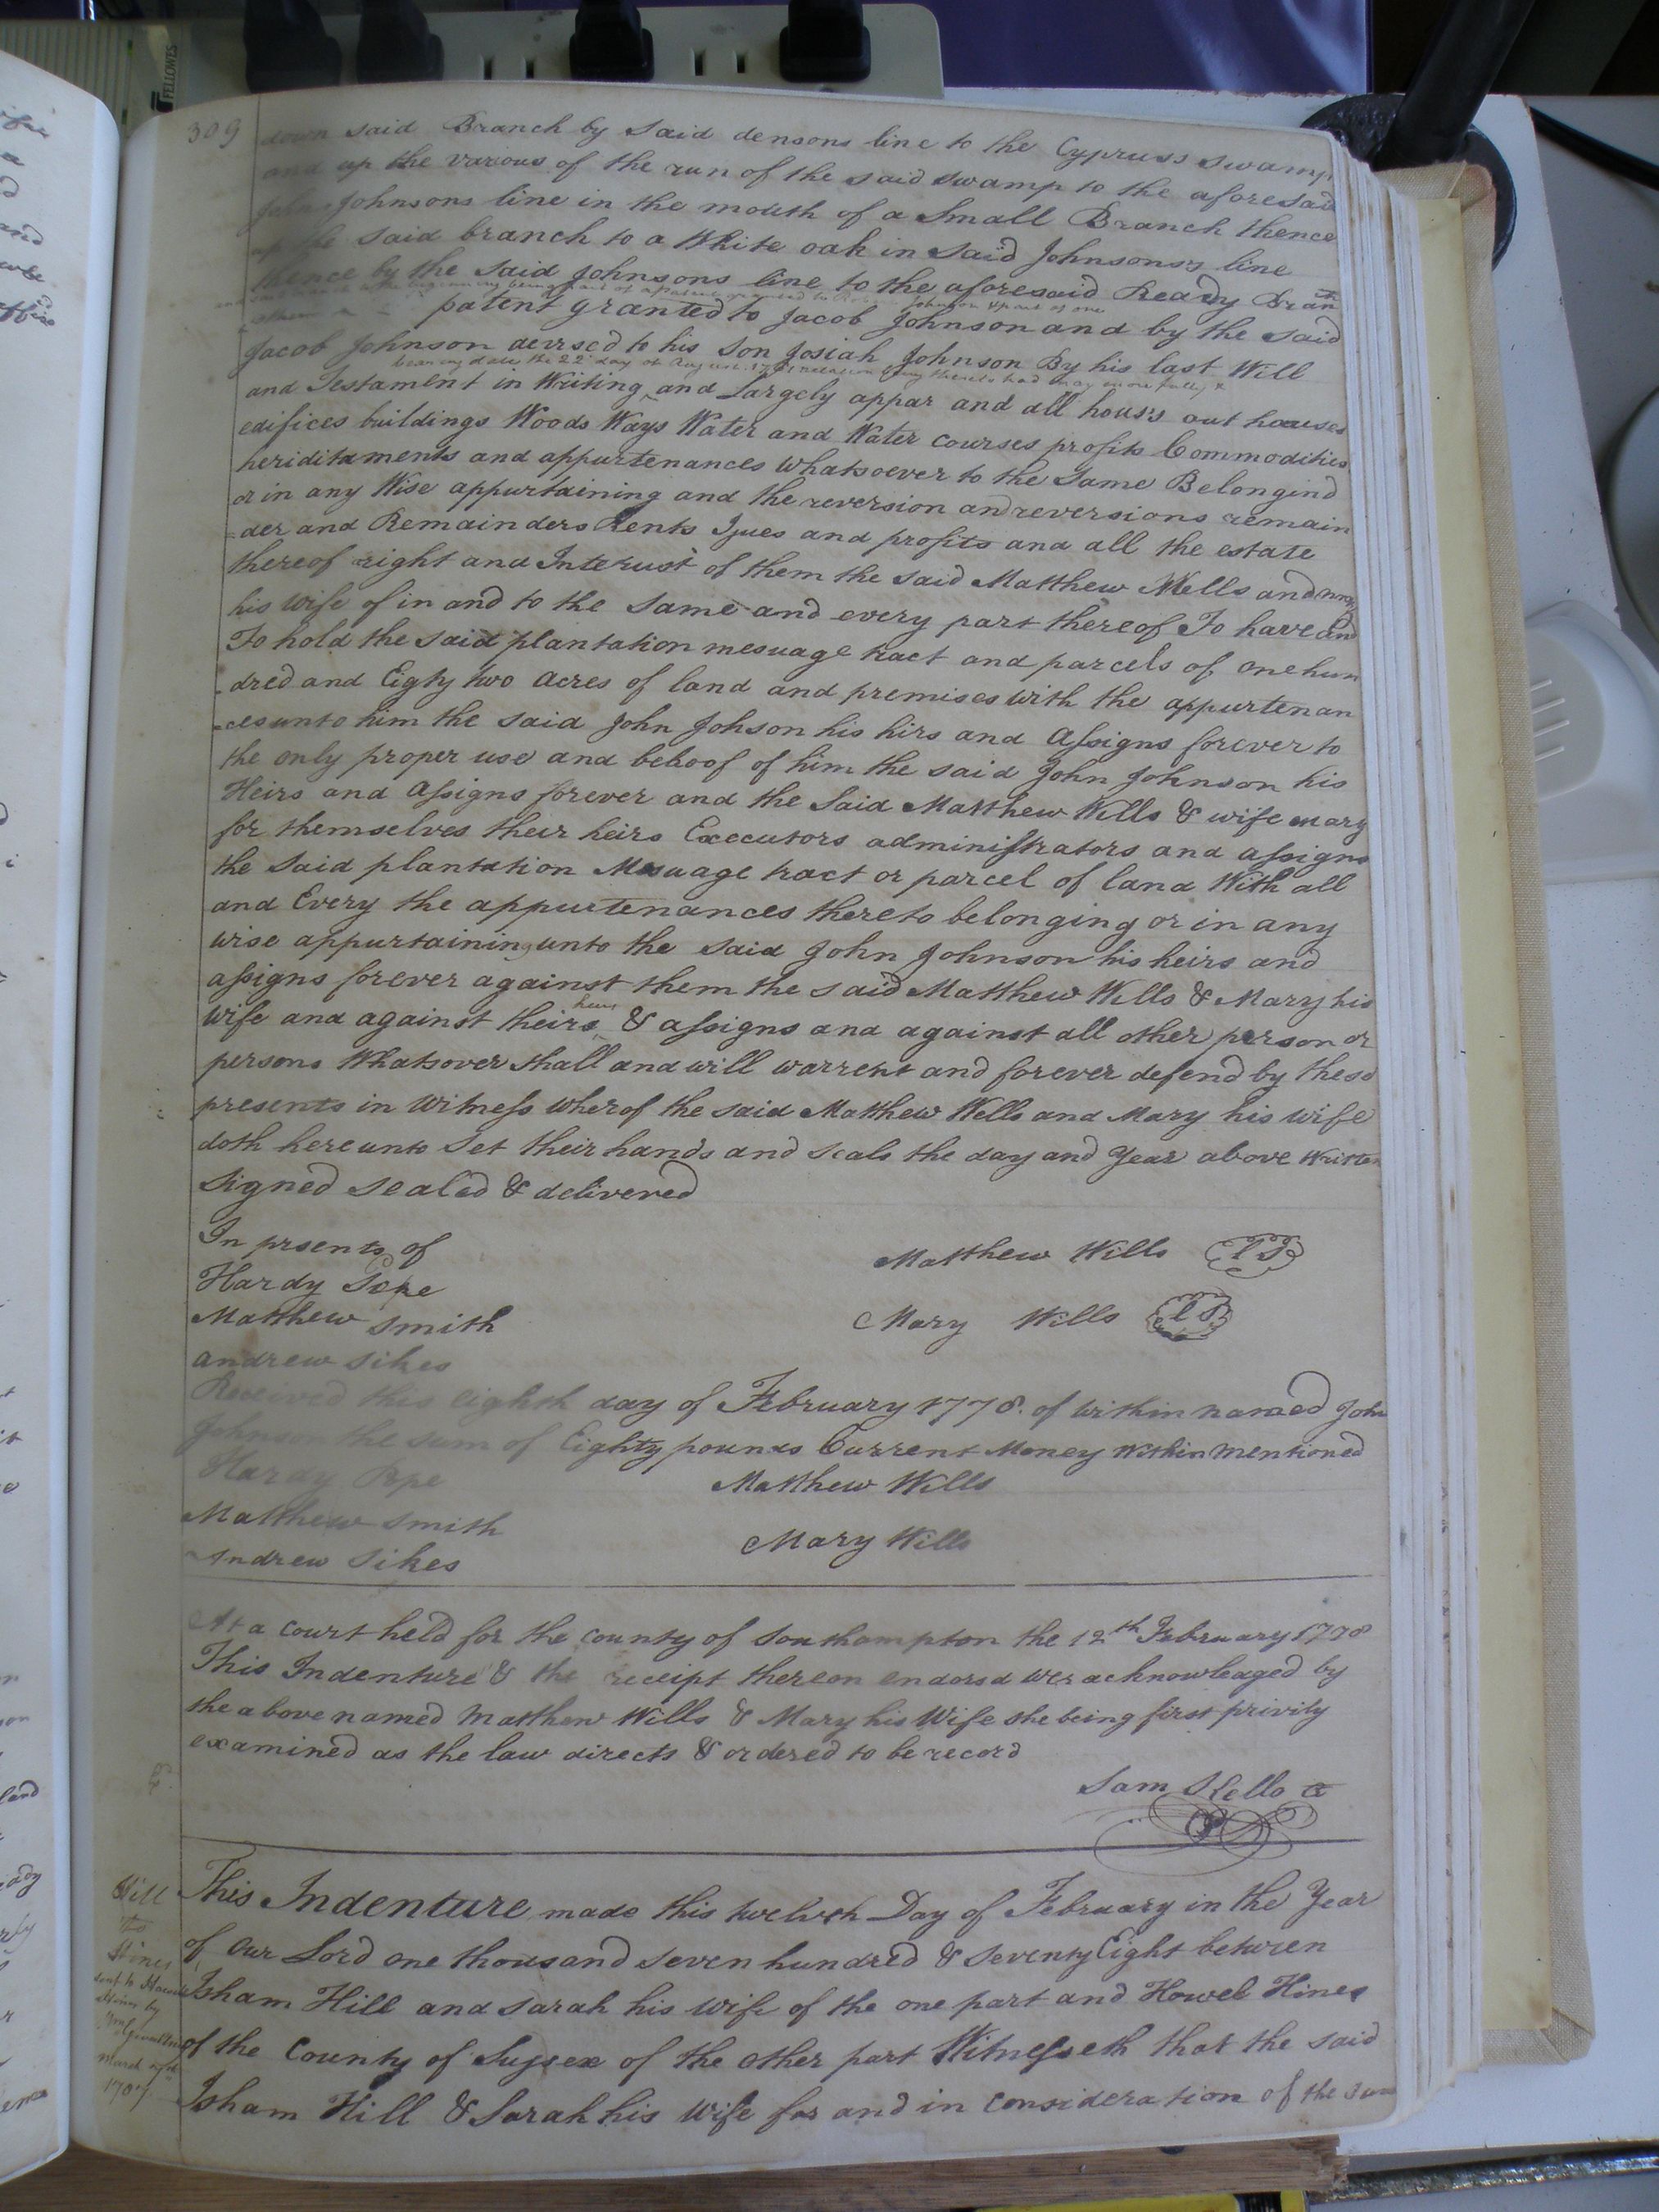 FELLOWES
309
down said Branch by said densons line to the Cypruss swamp
and up the various of the run of the said swamp to the aforesaid
John Johnsons line in the mouth of a Small Branch thence
up the said branch to a White oak in said Johnsons's line
thence by the said Johnsons line to the aforesaid Ready Bran
patent granted to Jacob Johnson and by the said
Jacob Johnson devised to his Son Josiah Johnson By his last Will
bearing date the 22d day of August
and Testament in Writing ^ and Largely appar and all hous's out houses
edifices buildings Woods Ways Water and Water courses profits Commodities
heriditaments and appurtenances whatsoever to the Same Belongind
or in any Wise appurtaining and the reversion and reversions remain
=der and Remainders Rents Ijues and profits and all the estate
thereof right and Interust of them the said Matthew Wells and mary
his wife of in and to the same and every part thereof To have and
To hold the said plantation mesuage tract and parcels of one hun
-dred and Eigty two acres of land and premises with the appurtenan
-ces unto him the said John Johson his hirs and Assigns forever to
the only proper use and behoof of him the said John Johnson his
Heirs and Assigns forever and the Said Matthew Wills & wife mary
for themselves their heirs Executors administrators and assigns
the said plantation Mesuage tract or parcel of land With all
and Every the appurtenances thereto belonging or in any
wise appurtaining unto the said John Johnson his heirs and
assigns forever against them the said Matthew Wills & Mary his
heirs
wife and against theirs ^ & assigns and against all other person or
persons Whatsover shall and will warrent and forever defend by these
presents in Witness wherof the said Matthew Wells and Mary his wife
doth hereunto Set their hands and seals the day and Year above written
Signed sealed & delivered
In prsents of
Matthew Wills LS
Hardy Pope
Matthew Smith
Mary Wills LS
andrew sikes
Received this eighth day of February 1778. of within named John
Johnson the sum of Eighty pounds Current Money within mentioned
Hardy Pope
Matthew Wills
Matthew Smith
Mary Wills
Andrew Sikes
At a court held for the county of Southampton the 12th February 1778
This Indenture & the receipt thereon endorsd wer acknowledged by
the above named Matthew Wills & Mary his Wife she being first privily
examined as the law directs & ordered to be record
Sam Kello
Hill
to
Hines
This Indenture made this twelvth Day of February in the Year
of Our Lord one thousand seven hundred & seventy Eight between
Isham Hill and Sarah his wife of the one part and Howel Hines
of the County of Sussex of the other part Witnesseth that the said
Isham Hill & Sarah his wife for and in Consideration of the sum